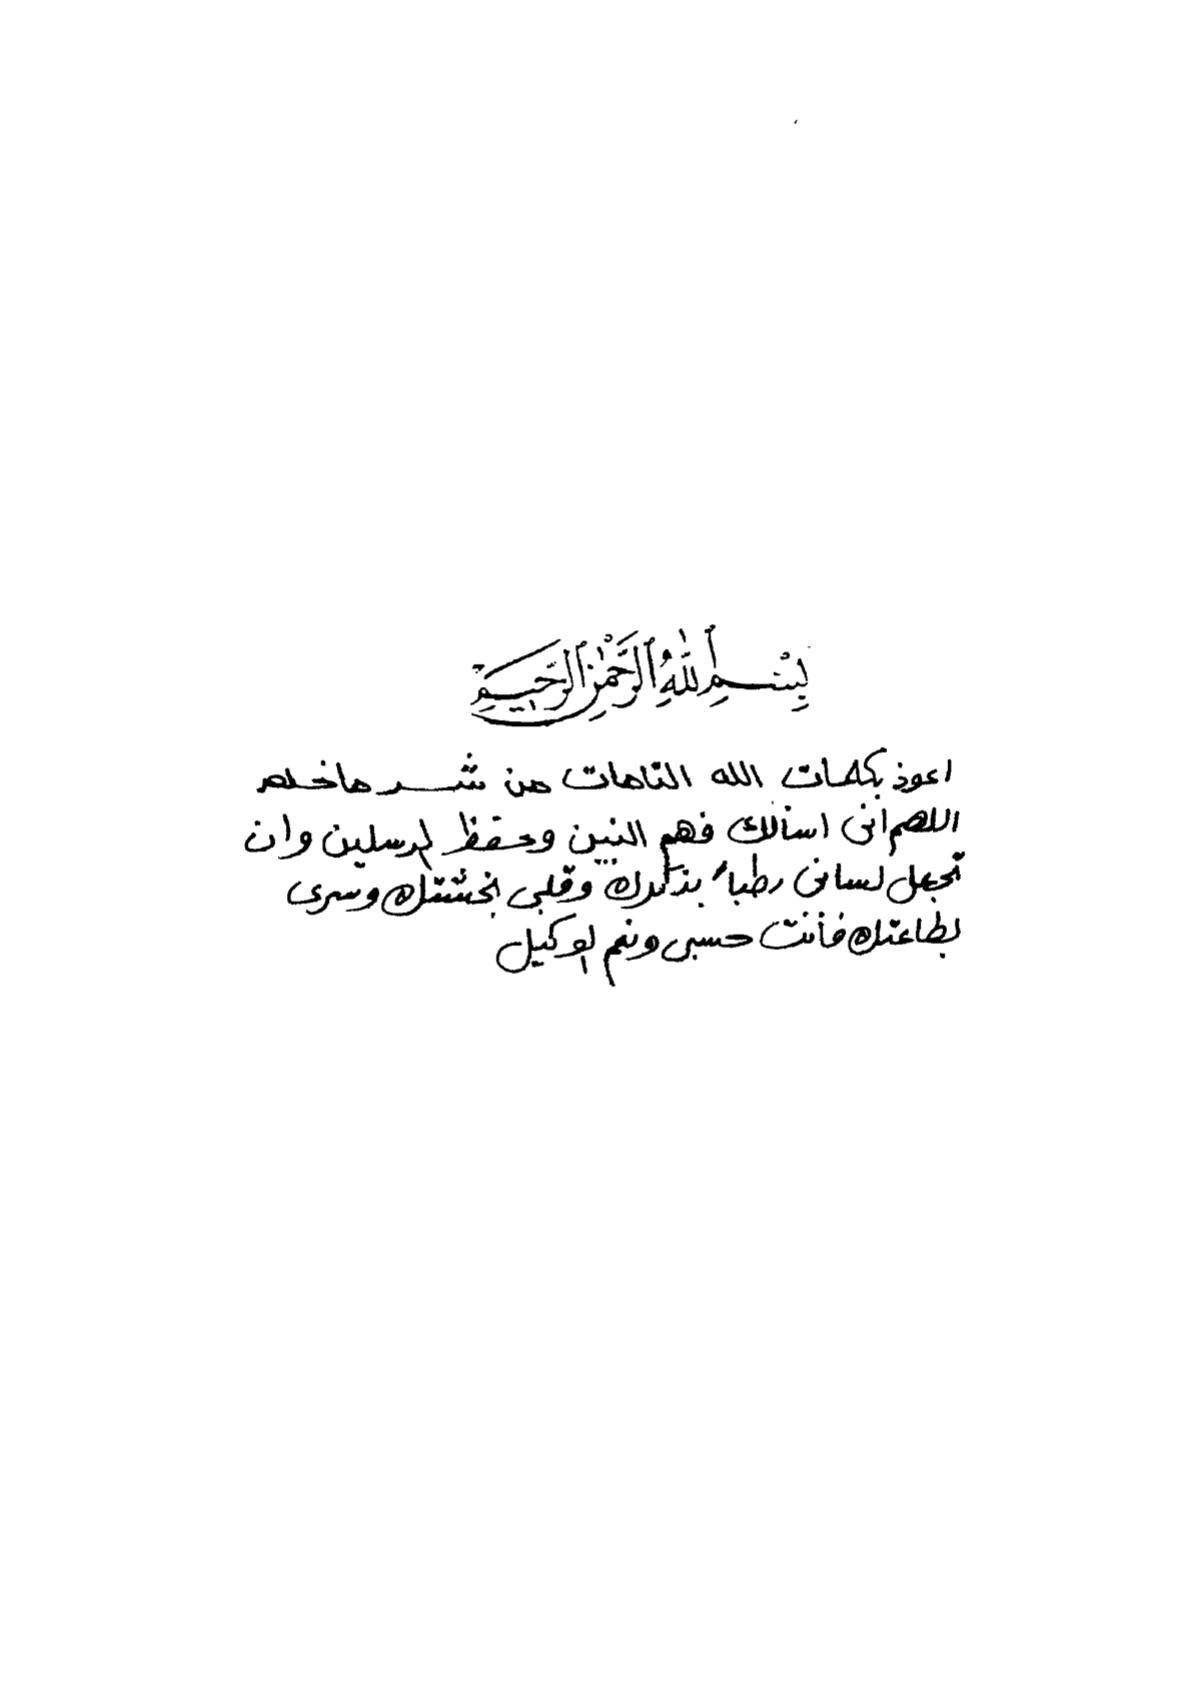 بِسْمِ ٱللَّٰهِ ٱلرَّحْمَٰنِ ٱلرَّحِيمِ
اعوذ بكلمات الله التامات من شر ما خلق
اللهم انى اسألك فهم النبين وحفظ المرسلين وان
تجعل لسانى رطباً بذكرك وقلبى بخشتك وسرى
بطاعتك فأنت حسبى ونعم الوكيل